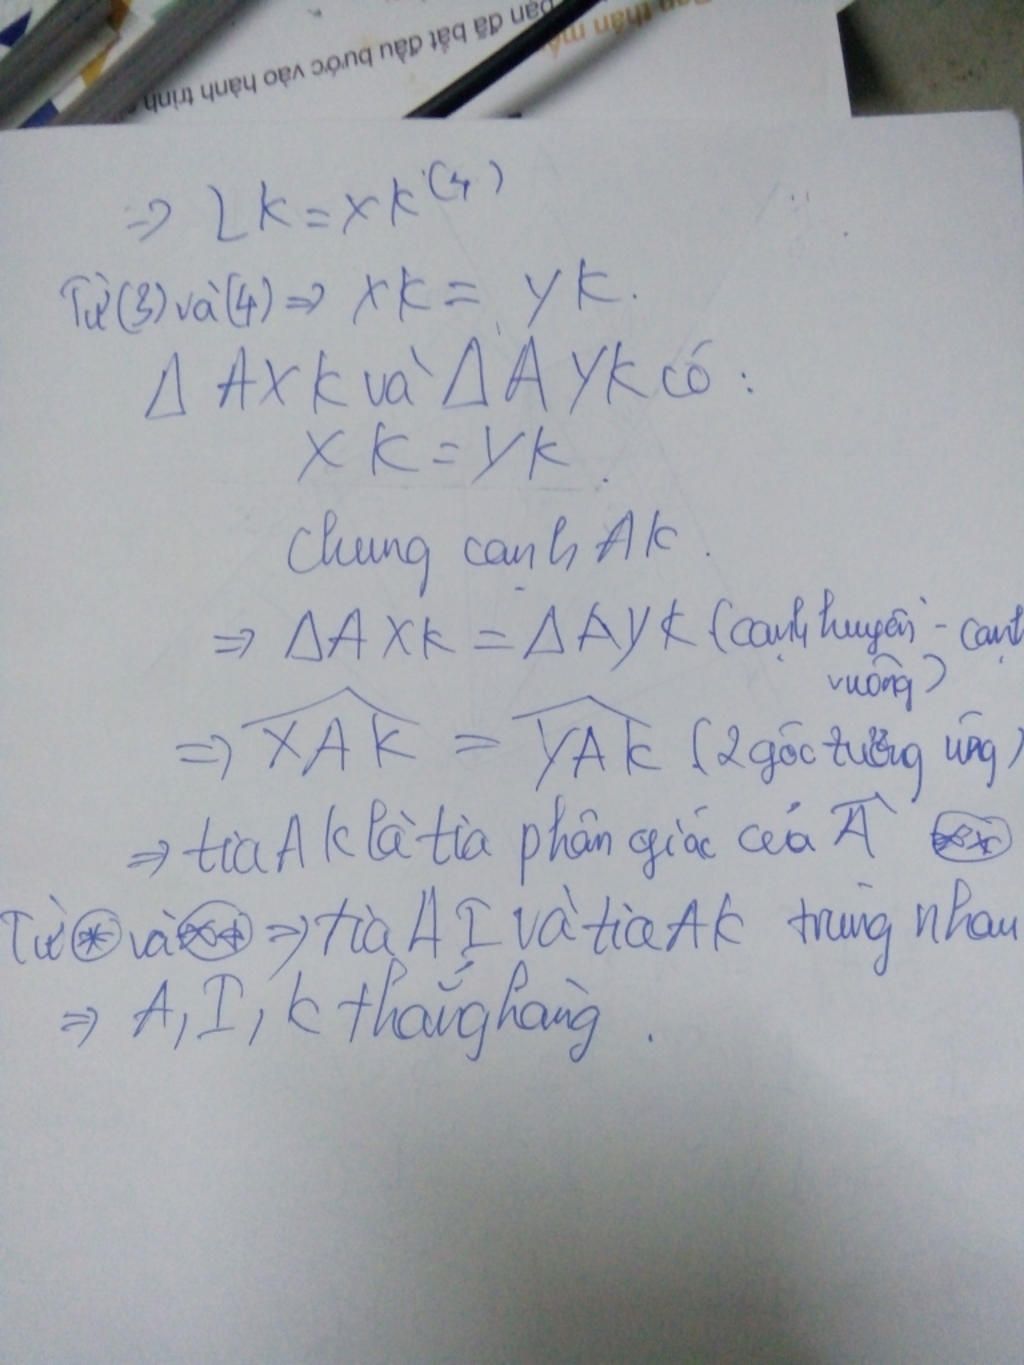 bạn đã bắt đầu bước vào hành trình
⇒ LK = XK (4)
Từ (3) và (4) ⇒ XK = YK.
Δ AXK và Δ AYK có :
XK = YK.
Chung cạnh AK.
⇒ ΔAXK = ΔAYK (cạnh huyền - cạnh
vuông)
⇒ \widehat{XAK} = \widehat{YAK} (2 góc tương ứng)
⇒ tia AK là tia phân giác của \widehat{A} (**)
Từ (*) và (**) ⇒ tia AI và tia AK trùng nhau
⇒ A, I, K thẳng hàng.